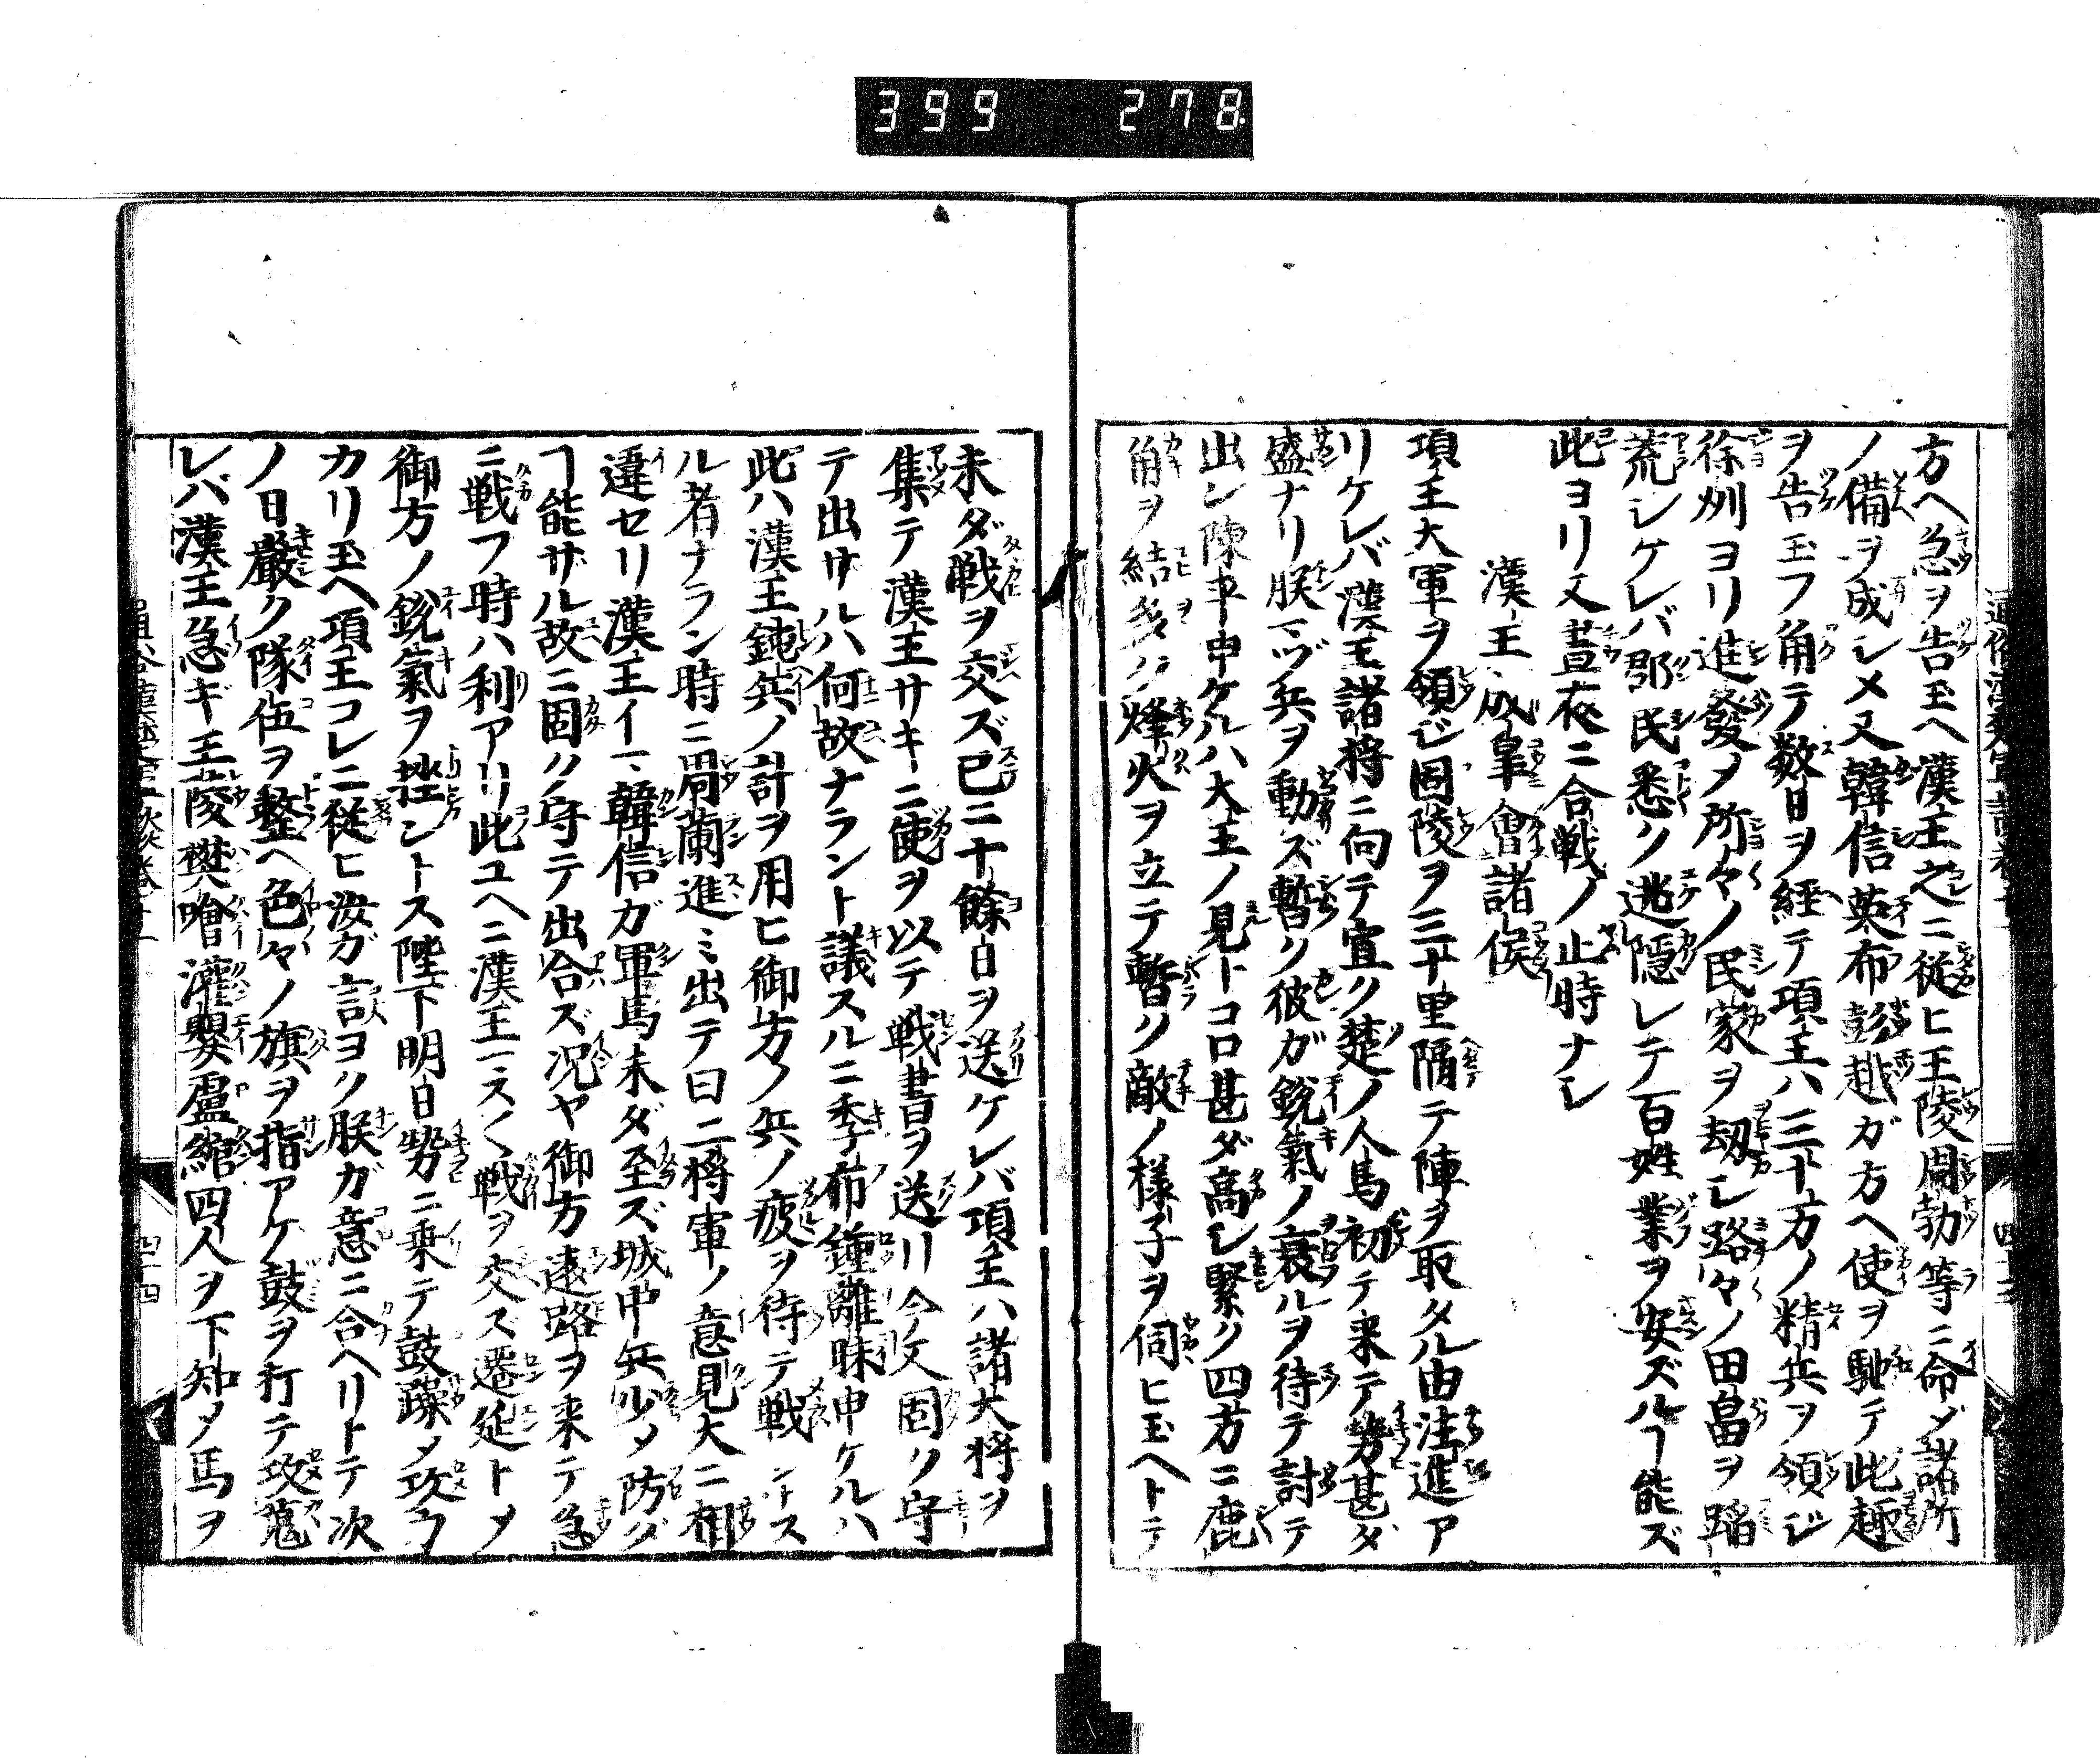 399 278
方ヘ急ヲ告玉ヘ漢王之ニ従ヒ王陵周勃等ニ命ダ諸所
ノ備ヲ成シメ又韓信英布彭越ガ方ヘ使ヲ馳テ此趣
ヲ告玉フ角テ数日ヲ経テ項王八三十万ノ精兵ヲ領ジ
徐州ヨリ進發メ所々ノ民家ヲ刼シ路々ノ田畠ヲ蹈
荒シケレバ郡民悉ク逃隠レテ百姓業ヲ安ズルヿ能ズ
此ヨリ又晝夜ニ合戦ノ止時ナシ
漢王成皐會諸侯
項王大軍ヲ領ジ固陵ヲ三十里隔テ陣ヲ取タル由注進ア
リケレバ漢王諸将ニ向テ宣ク楚ノ人馬初テ来テ勢甚ダ
盛ナリ朕マヅ兵ヲ動ズ暫ク彼ガ鋭氣ノ衰ルヲ待テ討テ
出ン陳平申ケルハ大王ノ見トコロ甚ダ高シ緊ク四方ニ鹿
角ヲ結烽火ヲ立テ暫ク敵ノ様子ヲ伺ヒ玉ヘトテ
未ダ戦ヲ交ズ已ニ十餘日ヲ送ケレバ項王ハ諸大将ヲ
集テ漢王サキニ使ヲ以テ戦書ヲ送リ今又固ク守
テ出サルハ何故ナラント議スルニ季布鍾離昧申ケルハ
此ハ漢王鈍兵ノ計ヲ用ヒ御方ノ兵ノ疲ヲ待テ戦ントス
ル者ナラン時ニ周蘭進ミ出テ曰二将軍ノ意見大ニ相
違セリ漢王イマ韓信ガ軍馬未ダ至ズ城中兵少メ防グ
ヿ能サル故ニ固ク守テ出合ズ况ヤ御方遠路ヲ来テ急
ニ戦フ時ハ利アリ此ユヘニ漢王マス〱戦ヲ交ズ遷延トメ
御方ノ鋭氣ヲ挫ントス陛下明日勢ニ乗テ鼓譟メ攻カ
カリ玉ヘ項王コレニ従ヒ汝ガ言ヨク朕ガ意ニ合ヘリトテ次
ノ日嚴ク隊伍ヲ整ヘ色々ノ旗ヲ指アケ鼓ヲ打テ攻蒐
レバ漢王急ギ王陵樊噲灌嬰盧綰四人ヲ下知メ馬ヲ
四十四